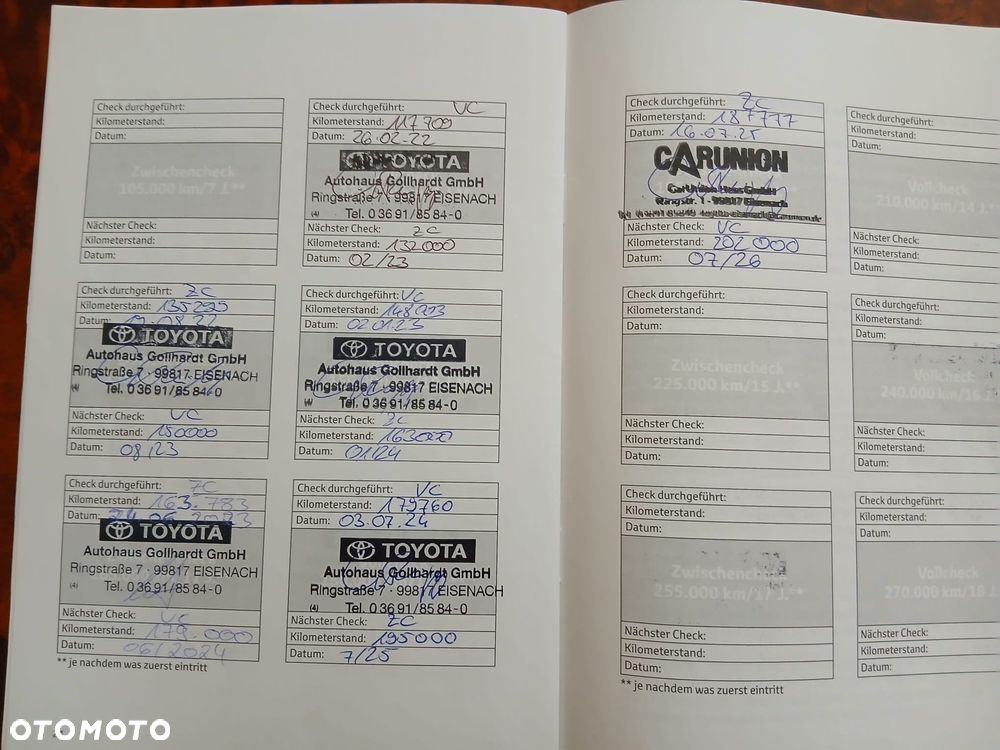 Check durchgeführt:
Kilometerstand:
Datum:
Zwischencheck
105.000 km/7 J.**
Nächster Check:
Kilometerstand:
Datum:
Check durchgeführt: VC
Kilometerstand: 117 709
Datum: 26.02.22
TOYOTA
Autohaus Gollhardt GmbH
Ringstraße 7 · 99817 EISENACH
(4) Tel. 0 36 91/85 84-0
Nächster Check: ZC
Kilometerstand: 132000
Datum: 02/23
Check durchgeführt: ZC
Kilometerstand: 135295
Datum:
TOYOTA
Autohaus Gollhardt GmbH
Ringstraße 7 · 99817 EISENACH
(4) Tel. 0 36 91/85 84-0
Nächster Check: VC
Kilometerstand: 150000
Datum: 08/23
Check durchgeführt: VC
Kilometerstand:
Datum: 02.01.23
TOYOTA
Autohaus Gollhardt GmbH
Ringstraße 7 · 99817 EISENACH
(4) Tel. 0 36 91/85 84-0
Nächster Check: ZC
Kilometerstand: 163000
Datum: 01/24
Check durchgeführt: ZC
Kilometerstand: 163.783
Datum:
TOYOTA
Autohaus Gollhardt GmbH
Ringstraße 7 · 99817 EISENACH
(4) Tel. 0 36 91/85 84-0
Nächster Check: VC
Kilometerstand: 179.000
Datum: 06/2024
** je nachdem was zuerst eintritt
Check durchgeführt: VC
Kilometerstand: 179760
Datum: 03.07.24
TOYOTA
Autohaus Gollhardt GmbH
Ringstraße 7 · 99817 EISENACH
(4) Tel. 0 36 91/85 84-0
Nächster Check: ZC
Kilometerstand: 195000
Datum: 7/25
Check durchgeführt: ZC
Kilometerstand: 187777
Datum: 16.07.25
CARUNION
CarUnion GmbH
Ringstr. 1 - 99817 Eisenach
Nächster Check: VC
Kilometerstand: 202 000
Datum: 07/26
Check durchgeführt:
Kilometerstand:
Datum:
Vollcheck
210.000 km/14 J.**
Nächster Check:
Kilometerstand:
Datum:
Check durchgeführt:
Kilometerstand:
Datum:
Zwischencheck
225.000 km/15 J.**
Nächster Check:
Kilometerstand:
Datum:
Check durchgeführt:
Kilometerstand:
Datum:
Vollcheck
240.000 km/16 J.**
Nächster Check:
Kilometerstand:
Datum:
Check durchgeführt:
Kilometerstand:
Datum:
Zwischencheck
255.000 km/17 J.**
Nächster Check:
Kilometerstand:
Datum:
** je nachdem was zuerst eintritt
Check durchgeführt:
Kilometerstand:
Datum:
Vollcheck
270.000 km/18 J.
Nächster Check:
Kilometerstand:
Datum:
OTOMOTO